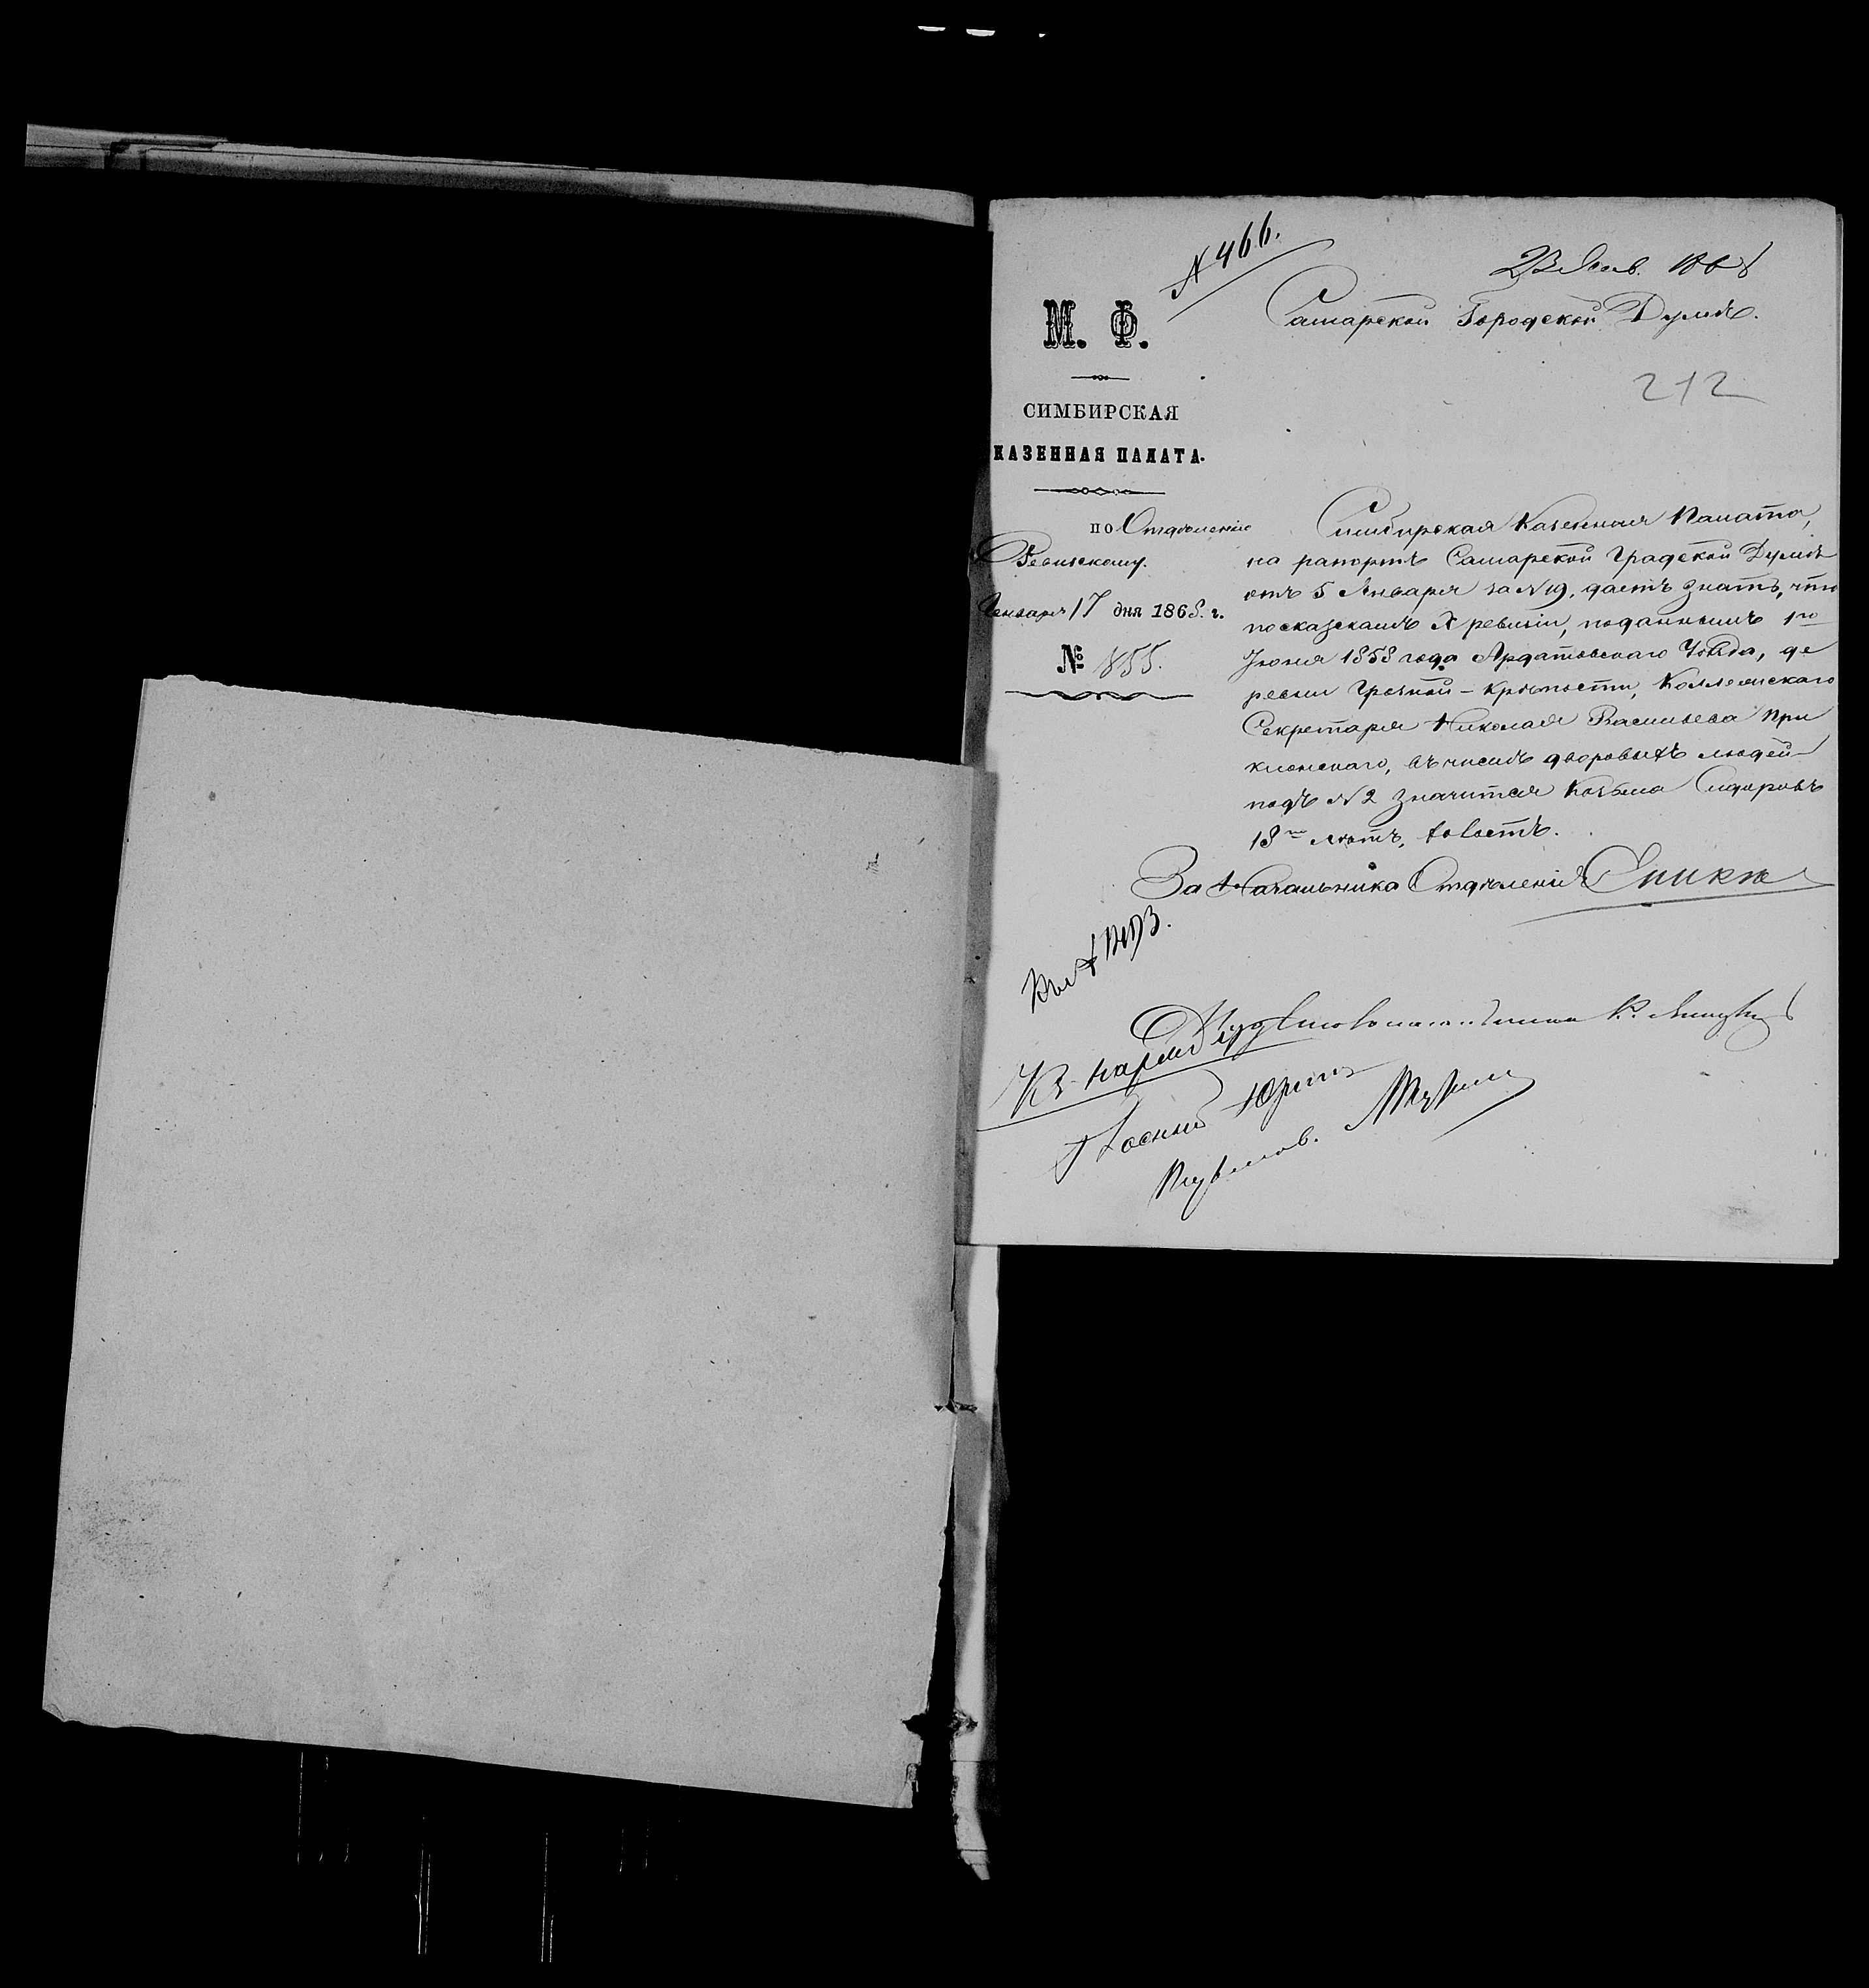 № 466.
23 Янв. 1868
Самарской Городской Думѣ.
М. Ф.
212
СИМБИРСКАЯ
КАЗЕННАЯ ПАЛАТА.
по Отдѣленію
Ревизскому.
Января 17 дня 1868. г.
№ 855.
Симбирская Казенная Палата,
на рапортъ Самарской Градской Думы
отъ 5 Января за № 19, даетъ знать, что
по сказкамъ X ревизіи, поданнымъ 1го
Іюня 1858 года Ардатовскаго Уѣзда, де
ревни Грязной-Крѣпости, Коллежскаго
Секретаря Николая Васильева При
клонскаго, въ числѣ дворовыхъ людей
подъ № 2 значится Козьма Сидоровъ
18ти лѣтъ, холостъ.
За Начальника Отдѣленія